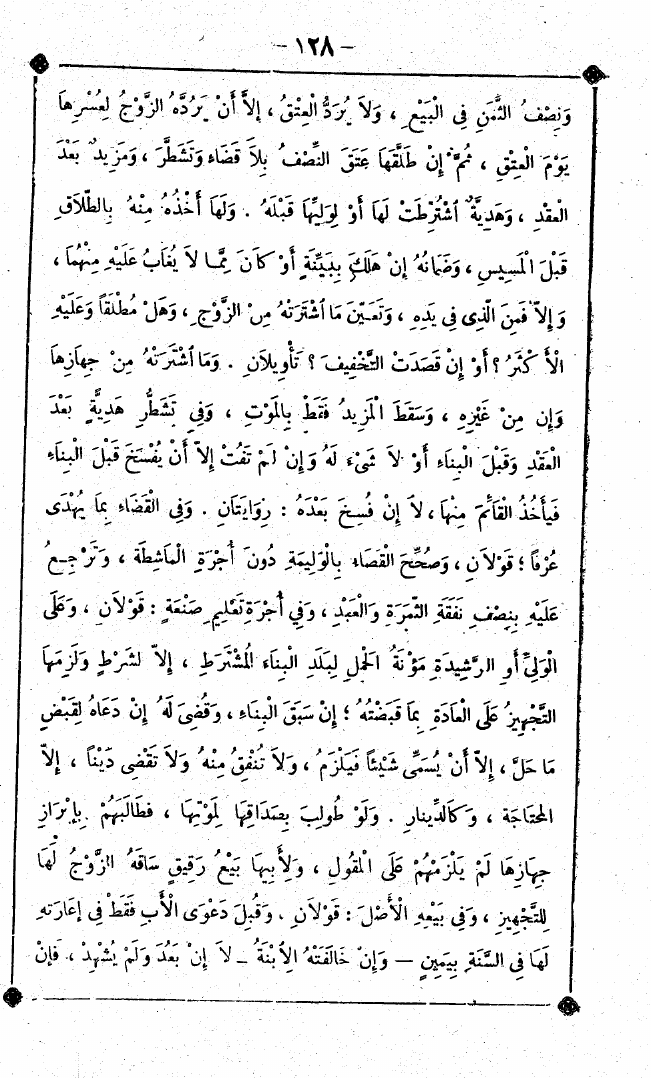 - ١٢٨ -
وَنِصْفُ الثَّمَنِ فِي الْبَيْعِ ، وَلاَ يُرَدُّ الْعِتْقُ ، إِلاَّ أَنْ يَرُدَّهُ الزَّوْجُ لِعُسْرِهَا
يَوْمَ الْعِتْقِ ، ثُمَّ إِنْ طَلَّقَهَا عَتَقَ النِّصْفُ بِلاَ قَضَاءٍ وَتَشَطَّرَ ، وَمَزِيدٌ بَعْدَ
الْعَقْدِ ، وَهَدِيَّةٌ اشْتُرِطَتْ لَهَا أَوْ لِوَلِيِّهَا قَبْلَهُ . وَلَهَا أَخْذُهُ مِنْهُ بِالطَّلاَقِ
قَبْلَ الْمَسِيسِ ، وَضَمَانُهُ إِنْ هَلَكَ بِبَيِّنَةٍ أَوْ كَانَ مِمَّا لاَ يُغَابُ عَلَيْهِ مِنْهُمَا ،
وَإِلاَّ فَمِنَ الَّذِي فِي يَدِهِ ، وَتَعَيَّنَ مَا اشْتَرَتْهُ مِنَ الزَّوْجِ ، وَهَلْ مُطْلَقاً وَعَلَيْهِ
الْأَكْثَرُ ؟ أَوْ إِنْ قَصَدَتِ التَّخْفِيفَ ؟ تَأْوِيلاَنِ . وَمَا اشْتَرَتْهُ مِنْ جِهَازِهَا
وَإِن مِنْ غَيْرِهِ ، وَسَقَطَ الْمَزِيدُ فَقَطْ بِالْمَوْتِ ، وَفِي تَشَطُّرِ هَدِيَّةٍ بَعْدَ
الْعَقْدِ وَقَبْلَ الْبِنَاءِ أَوْ لاَ شَيْءَ لَهُ وَإِنْ لَمْ تَفُتْ إِلاَّ أَنْ يُفْسَخَ قَبْلَ الْبِنَاءِ
فَيَأْخُذُ الْقَائِمَ مِنْهَا ، لاَ إِنْ فُسِخَ بَعْدَهُ : رِوَايَتَانِ . وَفِي الْقَضَاءِ بِمَا يُهْدَى
عُرْفاً ؛ قَوْلاَنِ ، وَصُحِّحَ الْقَضَاءُ بِالْوَلِيمَةِ دُونَ أُجْرَةِ الْمَاشِطَةِ ، وَتَرْجِعُ
عَلَيْهِ بِنِصْفِ نَفَقَةِ الثَّمَرَةِ وَالْعَبْدِ ، وَفِي أُجْرَةِ تَعْلِيمِ صَنْعَةٍ : قَوْلاَنِ ، وَعَلَى
الْوَلِيِّ أَوِ الرَّشِيدَةِ مَؤُنَةُ الْحَمْلِ لِبَلَدِ الْبِنَاءِ الْمُشْتَرَطِ ، إِلاَّ لِشَرْطٍ وَلَزِمَهَا
التَّجْهِيزُ عَلَى الْعَادَةِ بِمَا قَبَضَتْهُ ؛ إِنْ سَبَقَ الْبِنَاءَ ، وَقُضِيَ لَهُ إِنْ دَعَاهُ لِقَبْضِ
مَا حَلَّ ، إِلاَّ أَنْ يُسَمِّيَ شَيْئاً فَيَلْزَمُ ، وَلاَ تُنْفِقُ مِنْهُ وَلاَ تَقْضِي دَيْناً ، إِلاَّ
الْمُحْتَاجَةُ ، وَكَالدِّينَارِ . وَلَوْ طُولِبَ بِصَدَاقِهَا لِمَوْتِهَا ، فَطَالَبَهُمْ بِإِبْرَازِ
جِهَازِهَا لَمْ يَلْزَمْهُمْ عَلَى الْمَقُولِ ، وَلِأَبِيهَا بَيْعُ رَقِيقٍ سَاقَهُ الزَّوْجُ لَهَا
لِلتَّجْهِيزِ ، وَفِي بَيْعِهِ الْأَصْلَ : قَوْلاَنِ . وَقُبِلَ دَعْوَى الْأَبِ فَقَطْ فِي إِعَارَتِهِ
لَهَا فِي السَّنَةِ بِيَمِينٍ — وَإِنْ خَالَفَتْهُ الِابْنَةُ - لاَ إِنْ بَعُدَ وَلَمْ يُشْهِدْ ، فَإِنْ